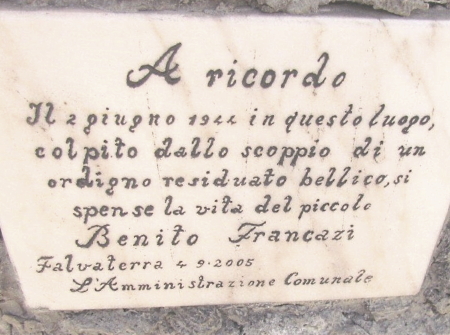 A ricordo
Il 2 giugno 1944 in questo luogo,
colpito dallo scoppio di un
ordigno residuato bellico, si
spense la vita del piccolo
Benito Francazi
Falvaterra 4-9-2005
L'Amministrazione Comunale